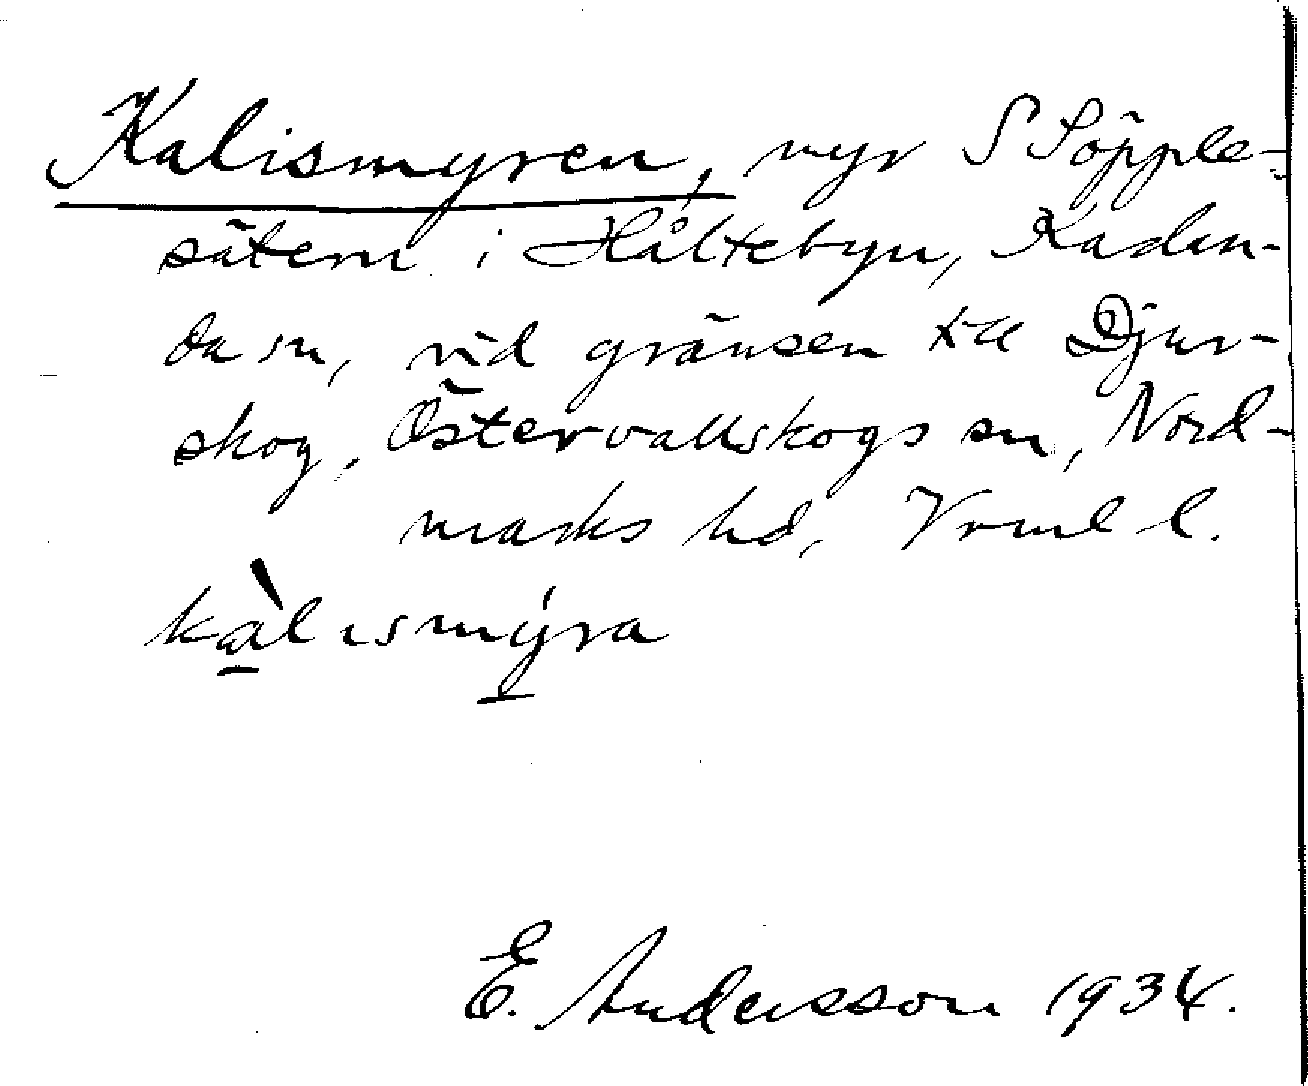 Kalismyren, myr S Söpple-
sätern i Håltebyn, Karlan-
da sn, vid gränsen till Djur-
skog, Östervallskogs sn, Nord-
marks hd, Vrml l.
kàlısmýra
E. Andersson 1934.